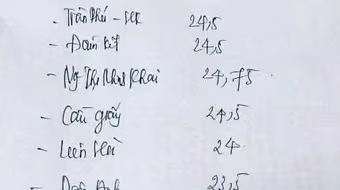 - Trần Phú - HK 24,5
- Đoàn Kết 24,5
- Ng Thị Minh Khai 24,75
- Cầu giấy 24,5
- 24
- 23,5